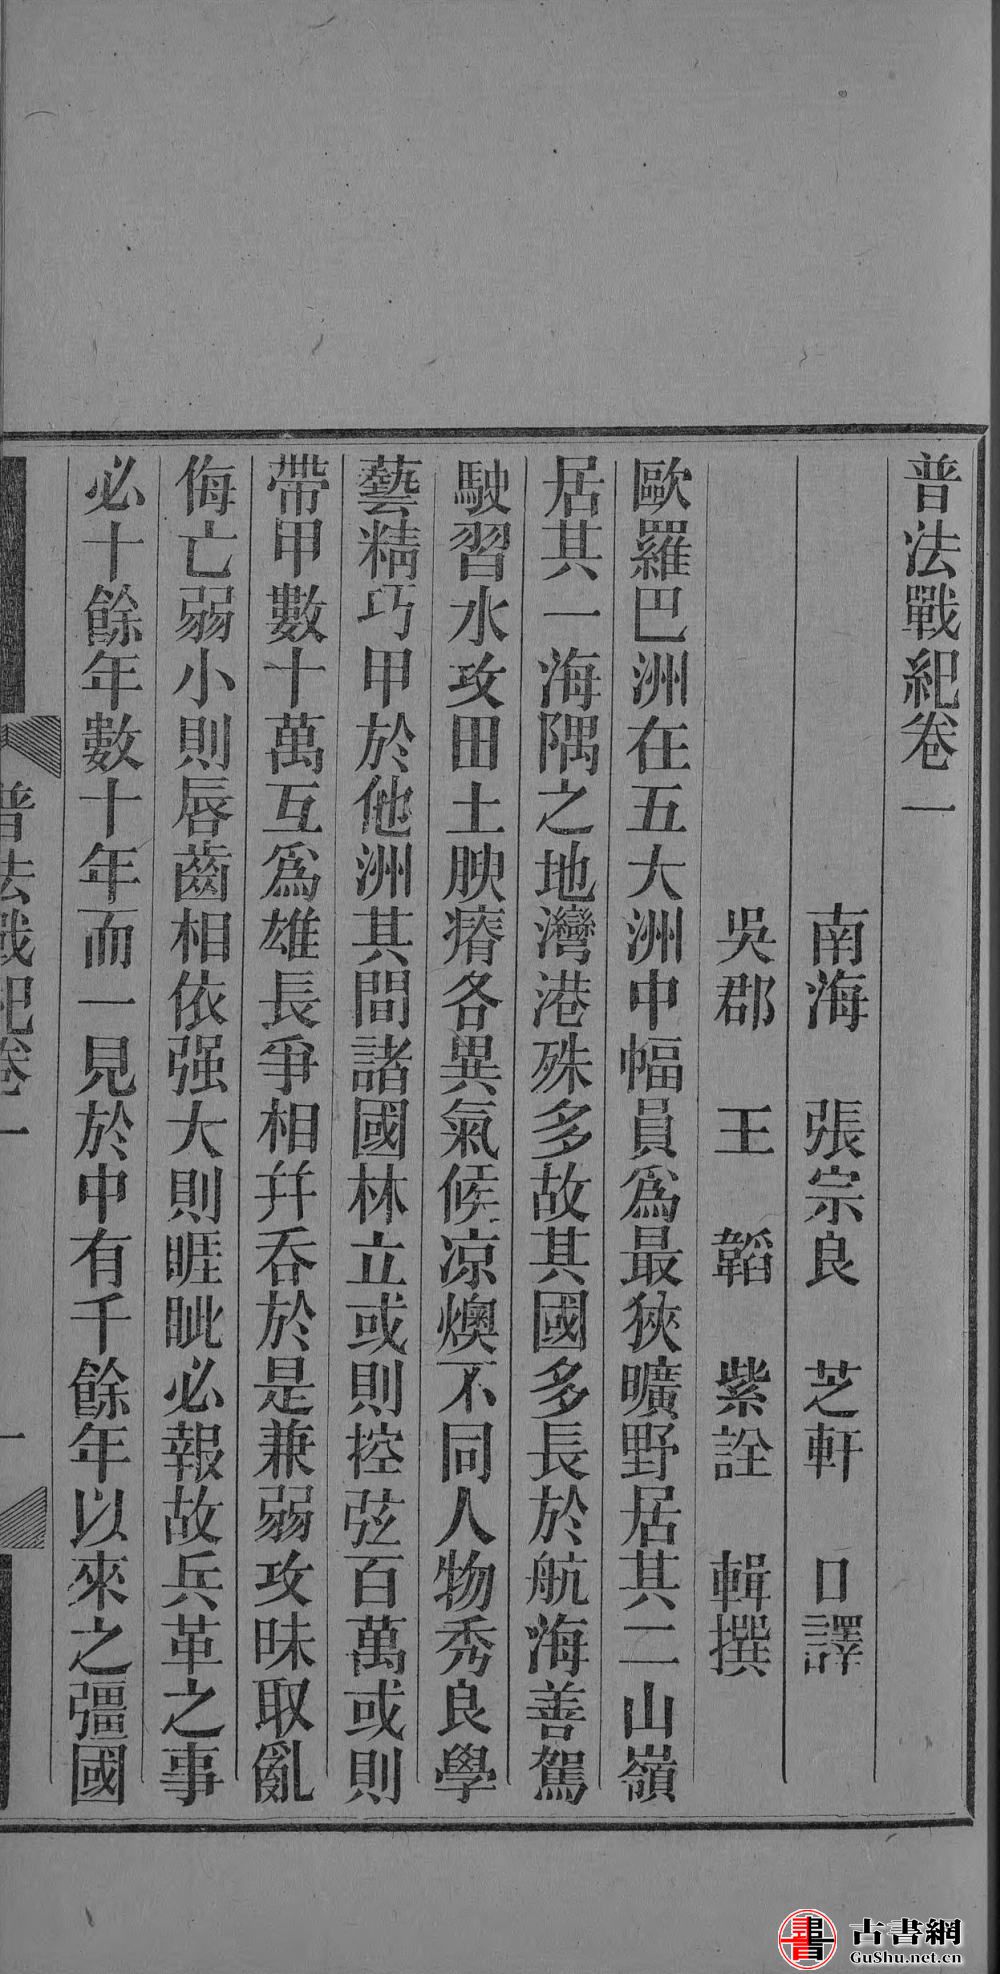 普法戰紀卷一
南海 張宗良 芝軒 口譯
吳郡 王 韜 紫詮 輯撰
歐羅巴洲在五大洲中幅員爲最狹曠野居其二山嶺
居其一海隅之地灣港殊多故其國多長於航海善駕
駛習水攻田土腴瘠各異氣候凉燠不同人物秀良學
藝精巧甲於他洲其間諸國林立或則控弦百萬或則
帶甲數十萬互爲雄長爭相幷吞於是兼弱攻昧取亂
侮亡弱小則唇齒相依强大則睚眦必報故兵革之事
必十餘年數十年而一見於中有千餘年以來之彊國
普法戰紀卷一
一
古書網
GuShu.net.cn